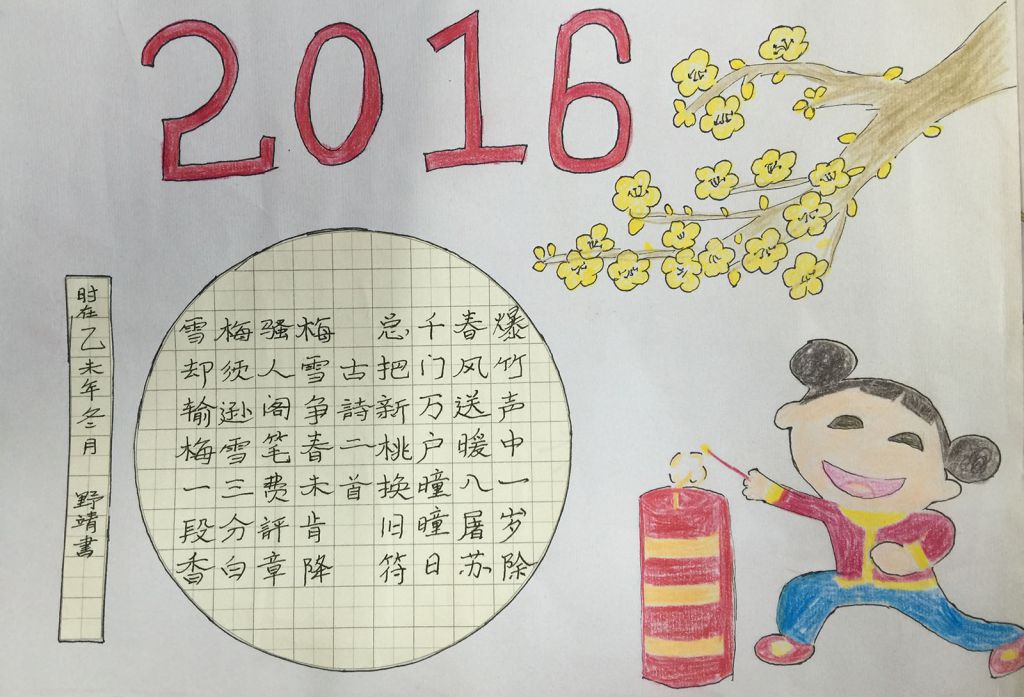 2016
爆竹声中一岁除
春风送暖入屠苏
千门万户曈曈日
总把新桃换旧符
古詩二首
梅雪争春未肯降
骚人阁笔费評章
梅须逊雪三分白
雪却输梅一段香
时在乙未年冬月 野靖書